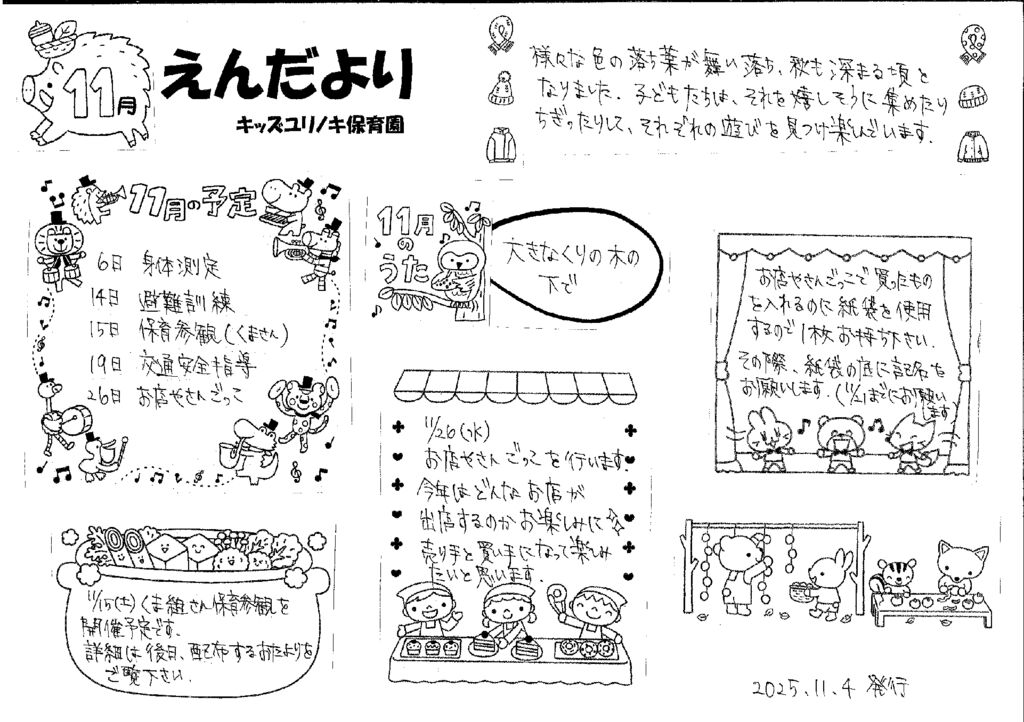 11月
えんだより
キッズユリノキ保育園
様々な色の落ち葉が舞い落ち、秋も深まる頃と
なりました。子どもたちは、それを嬉しそうに集めたり
ちぎったりして、それぞれの遊びを見つけ楽しんでいます。
11月の予定
6日 身体測定
14日 避難訓練
15日 保育参観(くまさん)
19日 交通安全指導
26日 お店やさんごっこ
11月
の
うた
大きなくりの木の
下で
お店やさんごっこで買ったもの
を入れるのに紙袋を使用
するので1枚お持ち下さい。
その際、紙袋の底に記名を
お願いします。(11/21までにお願い
します)
11/26(水)
お店やさんごっこを行います。
今年はどんなお店が
出店するのかお楽しみに☆
売り手と買い手になって楽しみ
たいと思います。
11/15(土)くま組さん保育参観を
開催予定です。
詳細は後日、配布するおたよりを
ご覧下さい。
2025.11.4 発行